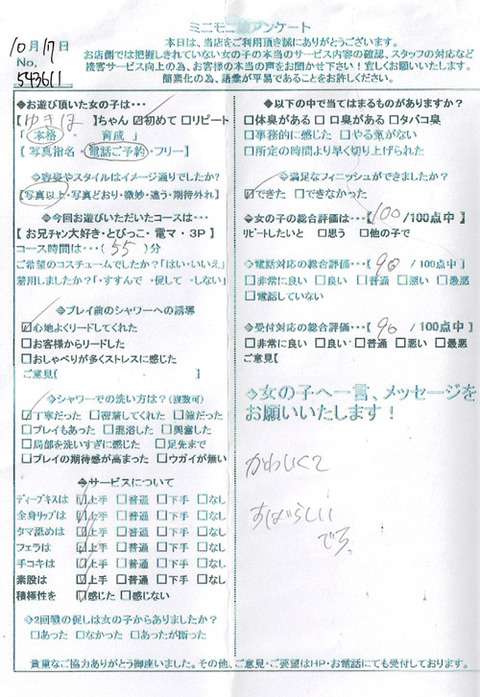 ミニモニ アンケート
10月17日
No.
543611
本日は、当店をご利用頂き誠にありがとうございます。
お店側では把握しきれていない女の子の本当のサービス内容の確認、スタッフの対応など
接客サービス向上の為、お客様の本当の声をお聞かせ下さい!宜しくお願いいたします。
簡素化の為、語彙が平易であることをお許しください。
◆お遊び頂いた女の子は・・・
【ゆきほ】ちゃん ☑初めて □リピート
「 本格 育成 」
( 写真指名・電話ご予約・フリー )
◇容姿やスタイルはイメージ通りでしたか?
【写真以上・写真どおり・微妙・違う・期待外れ】
◆今回お遊びいただいたコースは・・・
【 お兄チャン大好き・とびっこ・電マ・3P 】
コース時間は・・・( 55 )分
ご希望のコスチュームでしたか?「はい・いいえ」
着用しましたか?「・すすんで ・促して ・しない」
◆プレイ前のシャワーへの誘導
☑心地よくリードしてくれた
□お客様からリードした
□おしゃべりが多くストレスに感じた
ご意見【 】
◇シャワーでの洗い方は?(複数可)
☑丁寧だった □密着してくれた □雑だった
□プレイもあった □混浴した □興奮した
□局部を洗いすぎに感じた □足先まで
□プレイの期待感が高まった □ウガイが無い
◆サービスについて
ディープキスは ☑上手 □普通 □下手 □なし
全身リップは ☑上手 □普通 □下手 □なし
タマ舐めは ☑上手 □普通 □下手 □なし
フェラは ☑上手 □普通 □下手 □なし
手コキは ☑上手 □普通 □下手 □なし
素股は ☑上手 □普通 □下手 □なし
積極性を ☑感じた □感じない
◇2回戦の促しは女の子からありましたか?
□あった □なかった □あったが断った
◆以下の中で当てはまるものがありますか?
□体臭がある □口臭がある □タバコ臭
□事務的に感じた □やる気がない
□所定の時間より早く切り上げられた
◇満足なフィニッシュができましたか?
☑できた □できなかった
◆女の子の総合評価は・・・【100/100点中】
リピートしたいと □思う □他の子で
◇電話対応の総合評価・・・【 90 /100点中】
□非常に良い □良い □普通 □悪い □最悪
□電話していない
◆受付対応の総合評価・・・【 90 /100点中】
□非常に良い □良い □普通 □悪い □最悪
ご意見【 】
◇女の子へ一言、メッセージを
お願いいたします!
かわいくて
すばらしい
です。
貴重なご協力ありがとう御座いました。その他、ご意見・ご要望はHP・お電話にても受付しております。